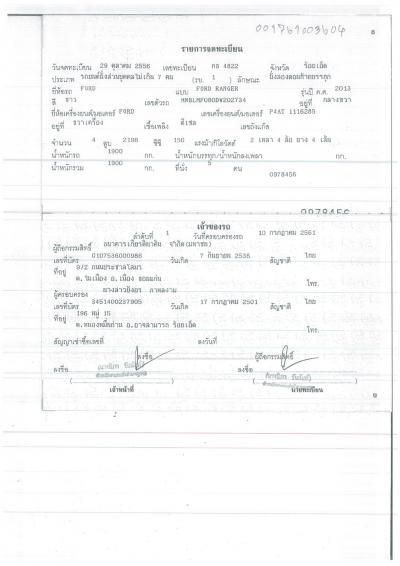 001761003604
6
รายการจดทะเบียน
วันจดทะเบียน 29 ตุลาคม 2556 เลขทะเบียน 4822 จังหวัด ร้อยเอ็ด
ประเภท รถยนต์นั่งส่วนบุคคลไม่เกิน 7 คน (รย. 1) ลักษณะ
ยี่ห้อรถ FORD แบบ FORD RANGER รุ่นปี ค.ศ. 2013
สี ขาว เลขตัวรถ อยู่ที่ กลางขวา
ยี่ห้อเครื่องยนต์ FORD เลขเครื่องยนต์ P4AT 1116285
อยู่ที่ ขวาเครื่อง เชื้อเพลิง ดีเซล เลขถังแก๊ส
จำนวน 4 สูบ 2198 ซีซี 150 แรงม้า 2 เพลา 4 ล้อ ยาง 4 เส้น
น้ำหนักรถ 1900 กก. น้ำหนักบรรทุก/น้ำหนักลงเพลา กก.
น้ำหนักรวม 1900 กก. ที่นั่ง 5 คน
0978456
0978456
เจ้าของรถ
ลำดับที่ 1 วันที่ครอบครองรถ 10 กรกฎาคม 2561
ผู้ถือกรรมสิทธิ์ ธนาคารเกียรตินาคิน จำกัด (มหาชน)
เลขที่บัตร 0107536000986 วันเกิด 7 กันยายน 2536 สัญชาติ ไทย
ที่อยู่ 9/2 ถนนประชาสโมสร
ต.ในเมือง อ.เมือง ขอนแก่น โทร.
ผู้ครอบครอง
เลขที่บัตร 3451400237905 วันเกิด 17 กรกฎาคม 2501 สัญชาติ ไทย
ที่อยู่ 196 หมู่ 15
อ.อาจสามารถ ร้อยเอ็ด โทร.
สัญญาเช่าซื้อเลขที่ ลงวันที่
ลงชื่อ ผู้ถือกรรมสิทธิ์
ลงชื่อ ลงชื่อ
เจ้าหน้าที่ นายทะเบียน